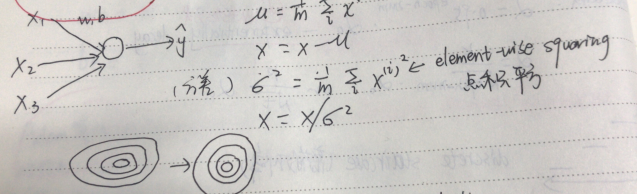 x₁ w,b
ŷ
x₂
x₃
μ = 1/m Σᵢ x
x = x - μ
(方差) σ² = 1/m Σᵢ x⁽ⁱ⁾² ← element-wise squaring
点积平方
x = x/σ²